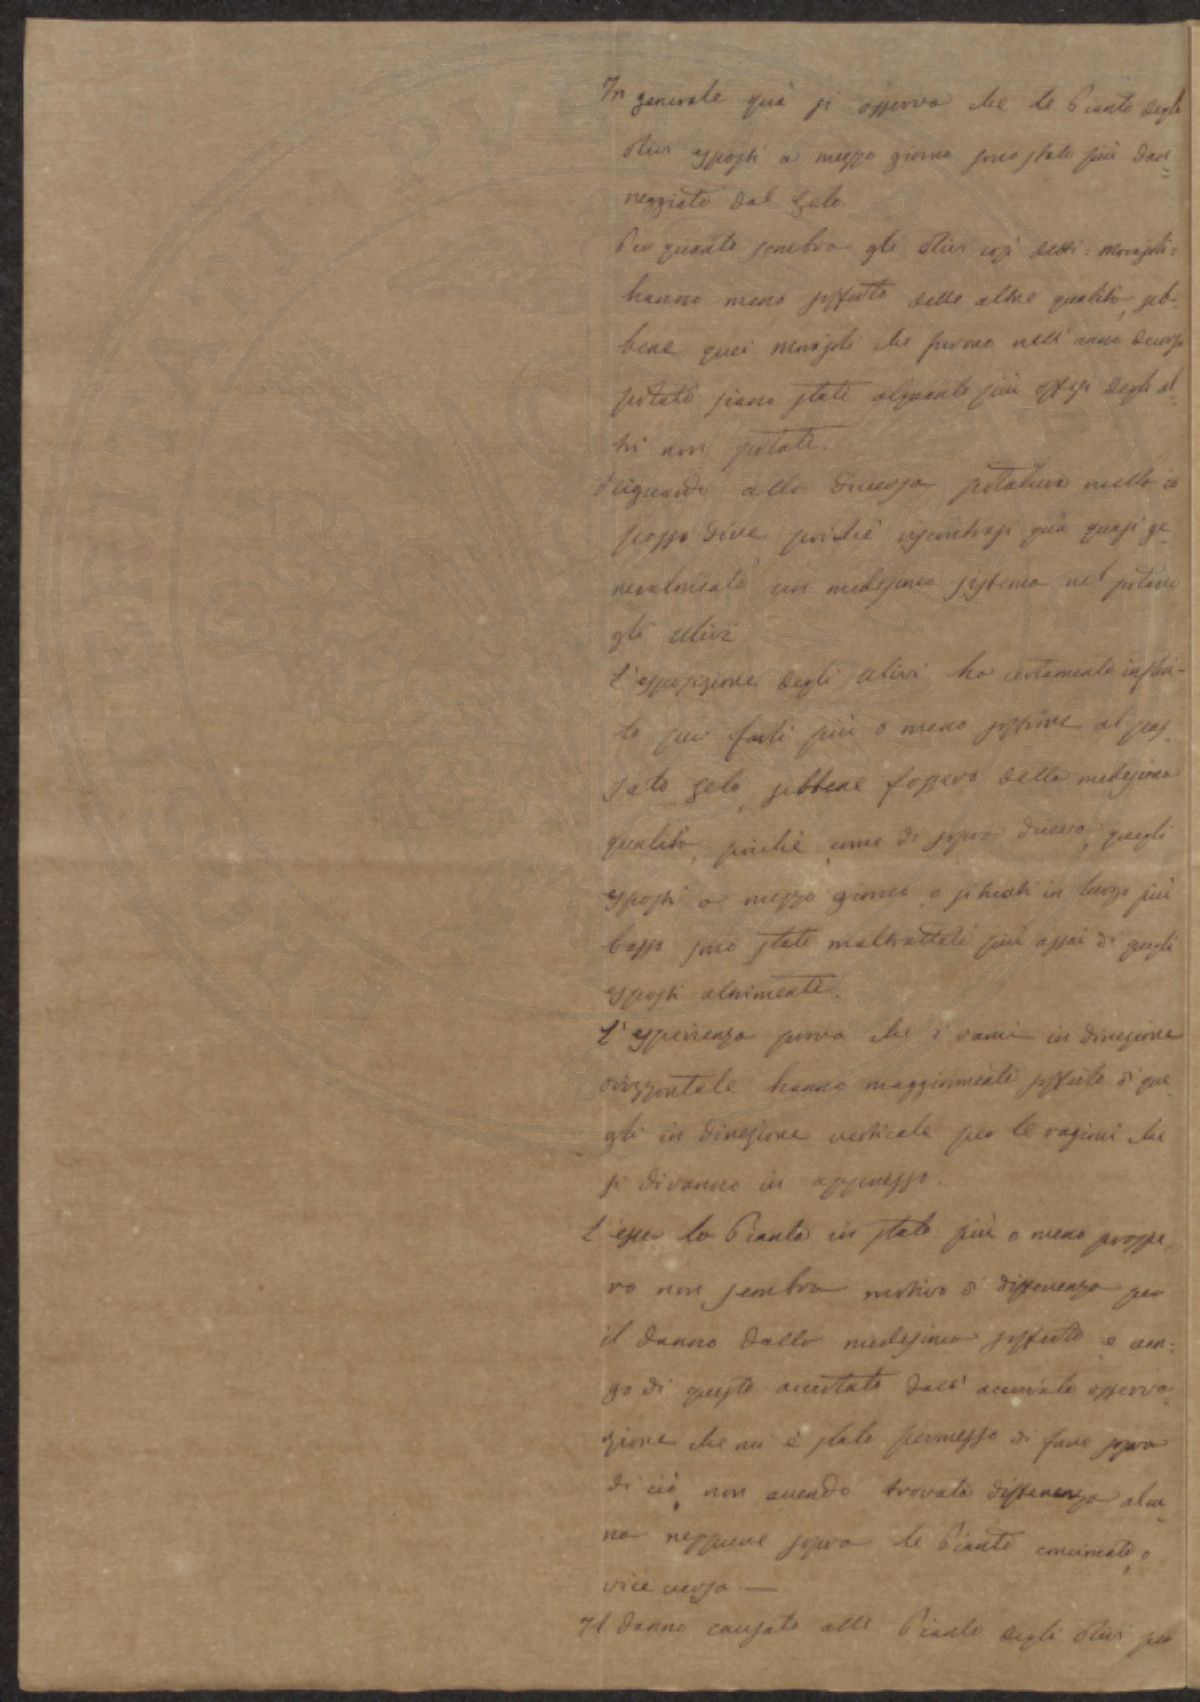 In generale quà si osserva che le Piante degli
Olivi esposti a mezzo giorno sono state più dan=
neggiate dal Gelo.
Per quanto sembra gli Olivi così detti = Morajoli =
hanno meno sofferto delle altre qualità, seb-
bene quei Morajoli che furono nell'anno decorso
potati siano stati alquanto più offesi degli al=
tri non potati.
Riguardo alla diversa potatura nulla io
posso dire, poichè riscontrasi quà quasi ge-
neralmente un medesimo sistema nel potare
gli Ulivi.
L'esposizione degli Ulivi ha certamente influi-
to per farli più o meno soffrire al pas-
sato Gelo, sebbene fossero della medesima
qualità, poichè, come di sopra diceva, quegli
esposti a mezzo giorno, o situati in luogo più
basso sono stati maltrattati più assai di quegli
esposti altrimenti.
L'esperienza prova che i rami in direzione
orizzontale hanno maggiormente sofferto di que-
gli in direzione verticale per le ragioni che
si diranno in appresso.
L'esser la Pianta in stato più o meno prospe-
ro non sembra motivo di differenza per
il danno dalla medesima sofferto, e ven=
go di questo accertato dall'accurata osserva-
zione che mi è stato permesso di fare sopra
di ciò, non avendo trovata differenza alcu-
na neppure sopra le Piante concimate, o
vice versa —
Il danno causato alle Piante degli Olivi per